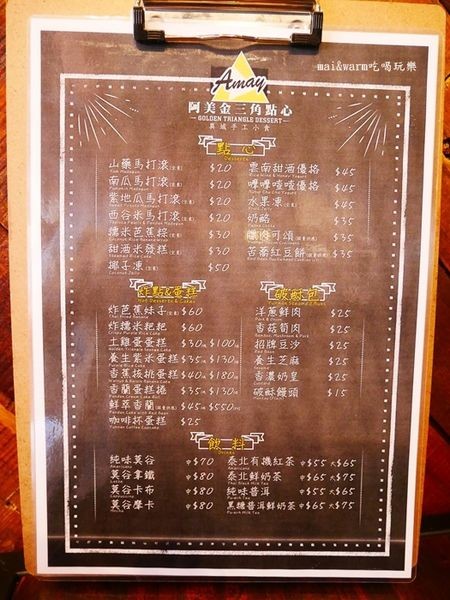 mai&warm吃喝玩樂
Amay
阿美金三角點心
GOLDEN TRIANGLE DESSERT
異域手工小食
點心
Desserts
山藥馬打滾(全素) $20
南瓜馬打滾(全素) $20
紫地瓜馬打滾(全素) $20
西谷米馬打滾(全素) $20
糯米芭蕉粽(全素) $30
甜酒米發糕(全素) $30
椰子凍(全素) $50
雲南甜酒優格 $45
嗶嗶喳喳優格 $45
水果凍(全素) $45
奶酪 $35
可頌 $35
苦蕎紅豆餅 $35
炸點&蛋糕
炸芭蕉妹子(全素) $60
炸糯米粑粑 $60
土雞蛋蛋糕 $30 $100
養生紫米蛋糕 $35 $130
香蕉核桃蛋糕 $40 $180
香蘭蛋糕捲 $35 $130
鮮萃香蘭 $45 $550
咖啡杯蛋糕 $25
破酥包
洋蔥鮮肉 $25
香菇筍肉 $25
招牌豆沙 $25
養生芝麻 $25
香濃奶皇 $25
破酥饅頭 $15
飲料
純味莫谷 中$70
莫谷拿鐵 中$80
莫谷卡布 中$80
莫谷摩卡 中$80
泰北有機紅茶 中$55 大$65
泰北鮮奶茶 中$65 大$75
純味普洱 中$55 大$65
黑糖普洱鮮奶茶 中$65 大$75